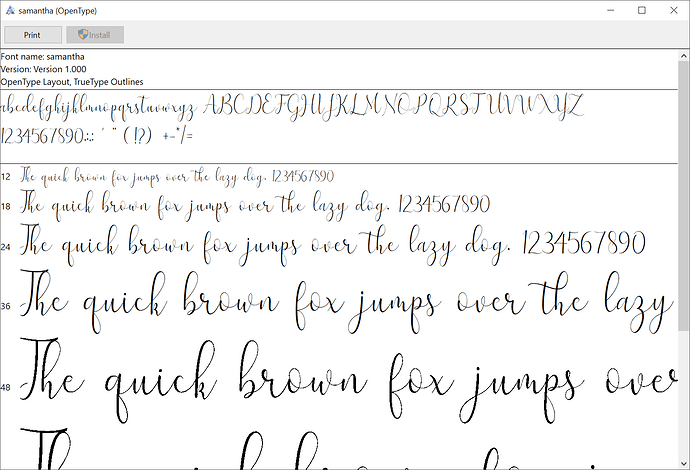 samantha (OpenType)
Print Install
Font name: samantha
Version: Version 1.000
OpenType Layout, TrueType Outlines
abcdefghijklmnopqrstuvwxyz ABCDEFGHIJKLMNOPQRSTUVWXYZ
1234567890.:,; ' " (!?) +-*/=
12 The quick brown fox jumps over the lazy dog. 1234567890
18 The quick brown fox jumps over the lazy dog. 1234567890
24 The quick brown fox jumps over the lazy dog. 1234567890
36 The quick brown fox jumps over the lazy
48 The quick brown fox jumps over